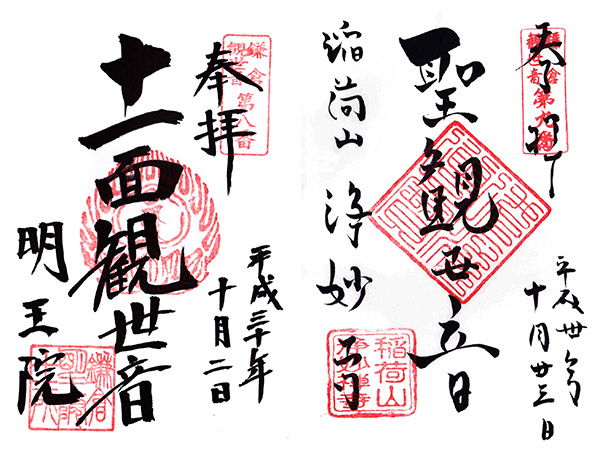 奉拝
鎌倉
観世音
第八番
十一面観世音
明王院
平成三十年
十月二日
鎌倉
奉拝
鎌倉
観世音
第九番
聖観世音
稲荷山 浄妙寺
稲荷山
平成卅年
十月廿三日